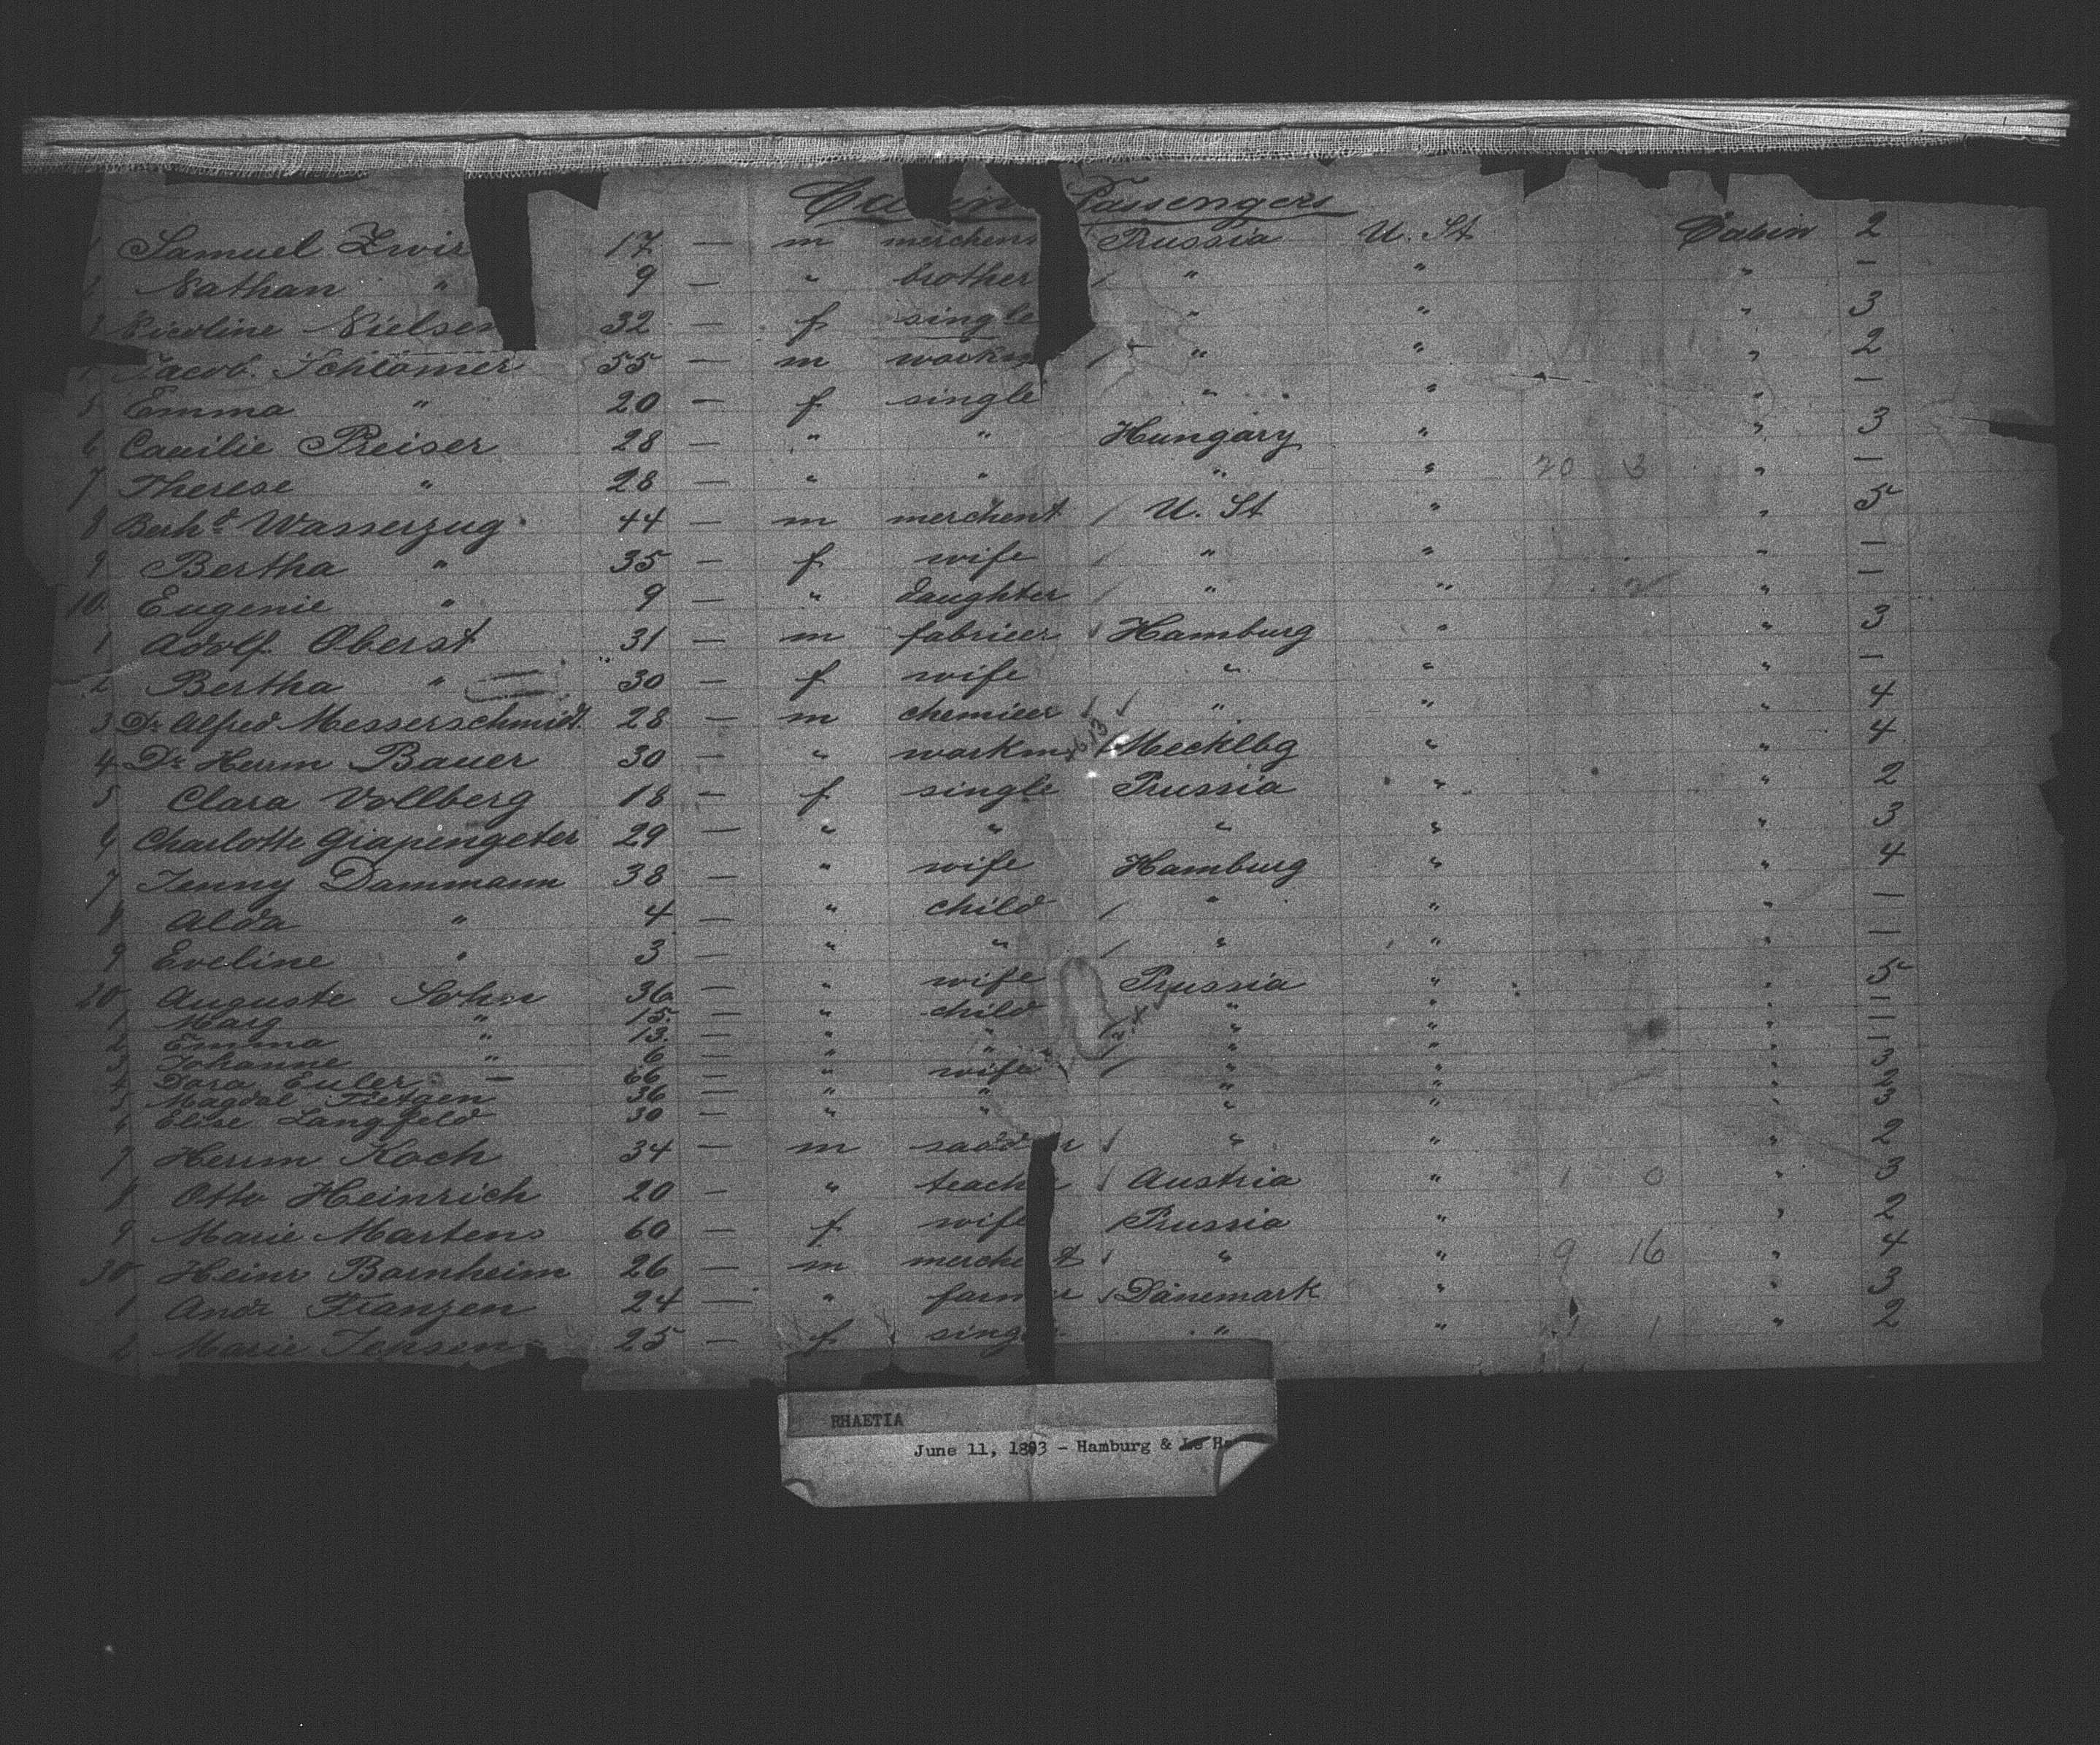 Cabin Passengers
1 Samuel Zwir 17 — m merchent Prussia U. St Cabin 2
2 Nathan " 9 — " brother / " " " —
3 Nicoline Nielsen 32 — f single " " " 3
4 Jacob Schlömer 55 — m workm / " " " 2
5 Emma " 20 — f single " " " —
6 Cacilie Preiser 28 — " " Hungary " " 3
7 Therese " 28 — " " " " 20 3 " —
8 Berhd Wasserzug 44 — m merchent / U. St " " 5
9 Bertha " 35 — f wife / " " " —
10 Eugenie " 9 — " daughter / " " " —
1 Adolf Oberst 31 — m fabricer / Hamburg " " 3
2 Bertha " 30 — f wife " " " —
3 Dr Alfred Messerschmidt 28 — m chemicer / / " " " 4
4 Dr Herrm Bauer 30 — " workm / Mecklbg " " 4
5 Clara Vollberg 18 — f single Prussia " " 2
6 Charlotte Giapengeter 29 — " " " " " 3
7 Jenny Dammann 38 — " wife Hamburg " " 4
8 Alda " 4 — " child / " " " —
9 Eveline " 3 — " " / " " " —
20 Auguste Sohn 36 — " wife Prussia " " 5
1 Marg " 15 — " child " " " —
2 Emma " 13 — " " / " " " —
3 Johanne " 6 — " " / " " " —
4 Dora Euler — 66 — " wife / " " " 3
5 Magdal Tietgen 36 — " " " " " 2
6 Elise Langfeld 30 — " " " " " 3
7 Herrm Koch 34 — m sadd r / " " " 2
8 Otto Heinrich 20 — " teach r / Austria " 1 0 " 3
9 Marie Martens 60 — f wife / Prussia " " 2
30 Heinr Bornheim 26 — m merche t / " " 9 16 " 4
1 Andr Franzen 24 — " farmer / Dänemark " " 3
2 Marie Jepsen 25 — f sing " " 1 " 2
RHAETIA
June 11, 1893 - Hamburg & Le H